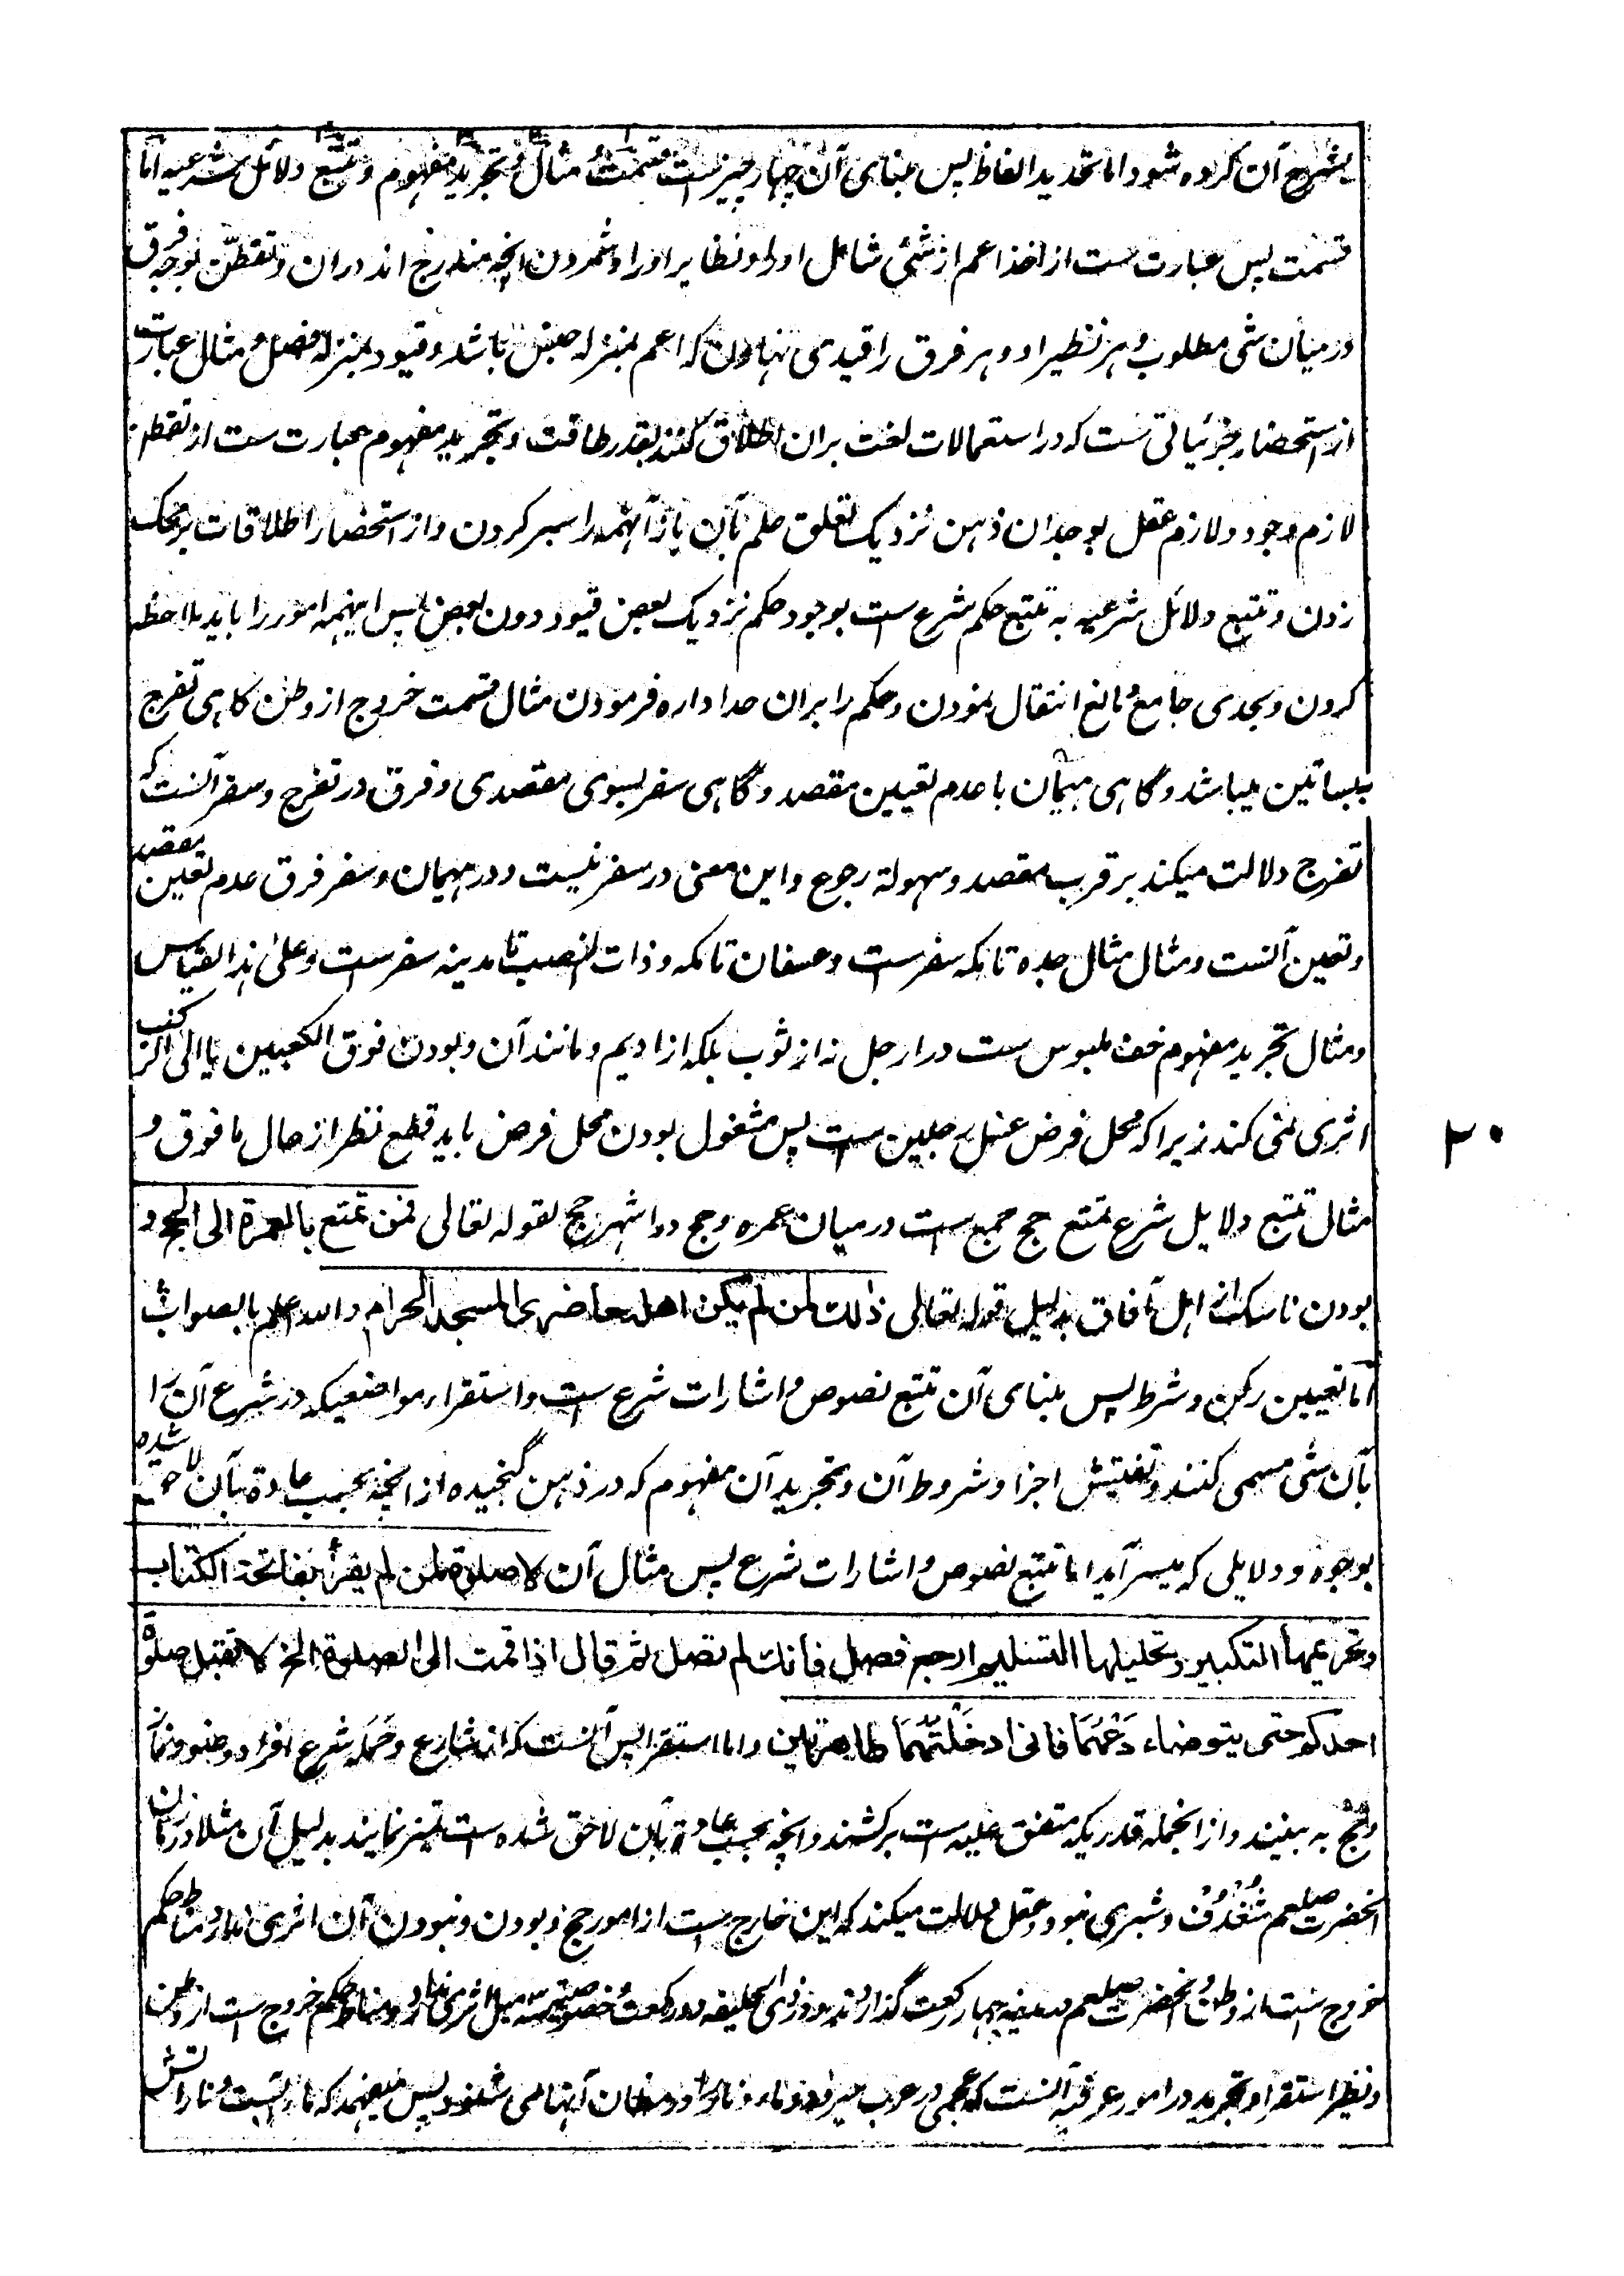 بشرع آن کرده شود اما تحدید الفاظ پس مبنای آن چهار چیز ست قسمت و مثال و تجرید مفهوم و تتبع دلائل شرعیه اما
قسمت پس عبارت ست از اخذ اعم از شئ شامل او را و نظایر او را و شمردن آنچه مندرج اند در ان و تفطن بوجه فرق
درمیان شی مطلوب و هر نظیر او و هر فرق را قیدی نهادن که اعم بمنزله جنس باشد و قیود بمنزله فصل و مثال عبارت
از استحضار جزئیاتی ست که در استعمالات لغت بران اطلاق کنند بقدر طاقت و تجرید مفهوم عبارت ست از تفطن
لازم وجود و لازم عقل بوجدان ذهن نزدیک تعلق علم بآن باز آنهمه را سبر کردن و از استحضار اطلاقات بر محک
زدن و تتبع دلائل شرعیه به تتبع حکم شرع ست بوجود حکم نزدیک بعض قیود دون بعض پس اینهمه امور را باید ملاحظه
کردن و بحدی جامع و مانع انتقال نمودن و حکم را بران حد اداره فرمودن مثال قسمت خروج از وطن کاهی تفرج
ببساتین میباشد و گاهی هیمان با عدم تعیین مقصد و گاهی سفر بسوی مقصدی و فرق در تفرج و سفر آنست که
تفرج دلالت میکند بر قرب مقصد و سهولة رجوع و این معنی در سفر نیست و در هیمان و سفر فرق عدم تعین مقصد
و تعین آنست و مثال مثال جده تا مکه سفر ست و عسفان تا مکه و ذات النصب تا مدینه سفر ست و علی هذا القیاس
و مثال تجرید مفهوم خف ملبوس ست در ارجل نه از ثوب بلکه از ادیم و مانند آن و بودن فوق الکعبین یا الی الرکب
اثری نمی کند زیرا که محل فرض غسل رجلین ست پس مشغول بودن محل فرض باید قطع نظر از حال ما فوق و
مثال تتبع دلایل شرع تمتع حج جمع ست درمیان عمره و حج در اشهر حج لقوله تعالی فمن تمتع بالعمرة الی الحج و
بودن ناسک از اهل آفاق بدلیل قوله تعالی ذالک لمن لم یکن اهله حاضری المسجد الحرام و الله اعلم بالصواب
اما تعیین رکن و شرط پس مبنای آن تتبع نصوص و اشارات شرع ست و استقراء مواضعیکه در شرع آن را
بآن شی مسمی کنند و تفتیش اجزا و شروط آن و تجرید آن مفهوم که در ذهن گنجیده از آنچه بحسب عادة بآن لاحق شده
بوجوه و دلایلی که میسر آید اما تتبع نصوص و اشارات شرع پس مثال آن لا صلوة لمن لم یقرأ بفاتحة الکتاب
و تحریمها التکبیر و تحلیلها التسلیم ارجع فصل فانک لم تصل ثم قال اذا قمت الی الصلوة الخ لا تقبل صلوة
احدکم حتی یتوضاء دعهما فانی ادخلتهما طاهرتین و اما استقرا پس آنست که از شارع و حمله شرع افراد وضو و نماز
و حج به بینند و از انجمله قدریکه متفق علیه ست برکشند و آنچه بحسب عادة بآن لاحق شده ست تمیز نمایند بدلیل آن مثلا در زمان
آنحضرت صلعم شغدف و شبری نبود و عقل دلالت میکند که این خارج ست از امور حج و بودن و نبودن آن اثری ندارد مناط حکم
خروج ست از وطن و آنحضرت صلعم در مدینه چهار رکعت گذاردند و در ذی الحلیفه دو رکعت و خصوصیت سه میل اثری ندارد و مناط حکم خروج ست از وطن
و نظیر استقرا و تجرید در امور عرفیه آنست که عجمی در عرب میرود و ماء و نار را در سخنان آنها می شنود پس میفهمد که ماء آبست و نار آتش
۲۰